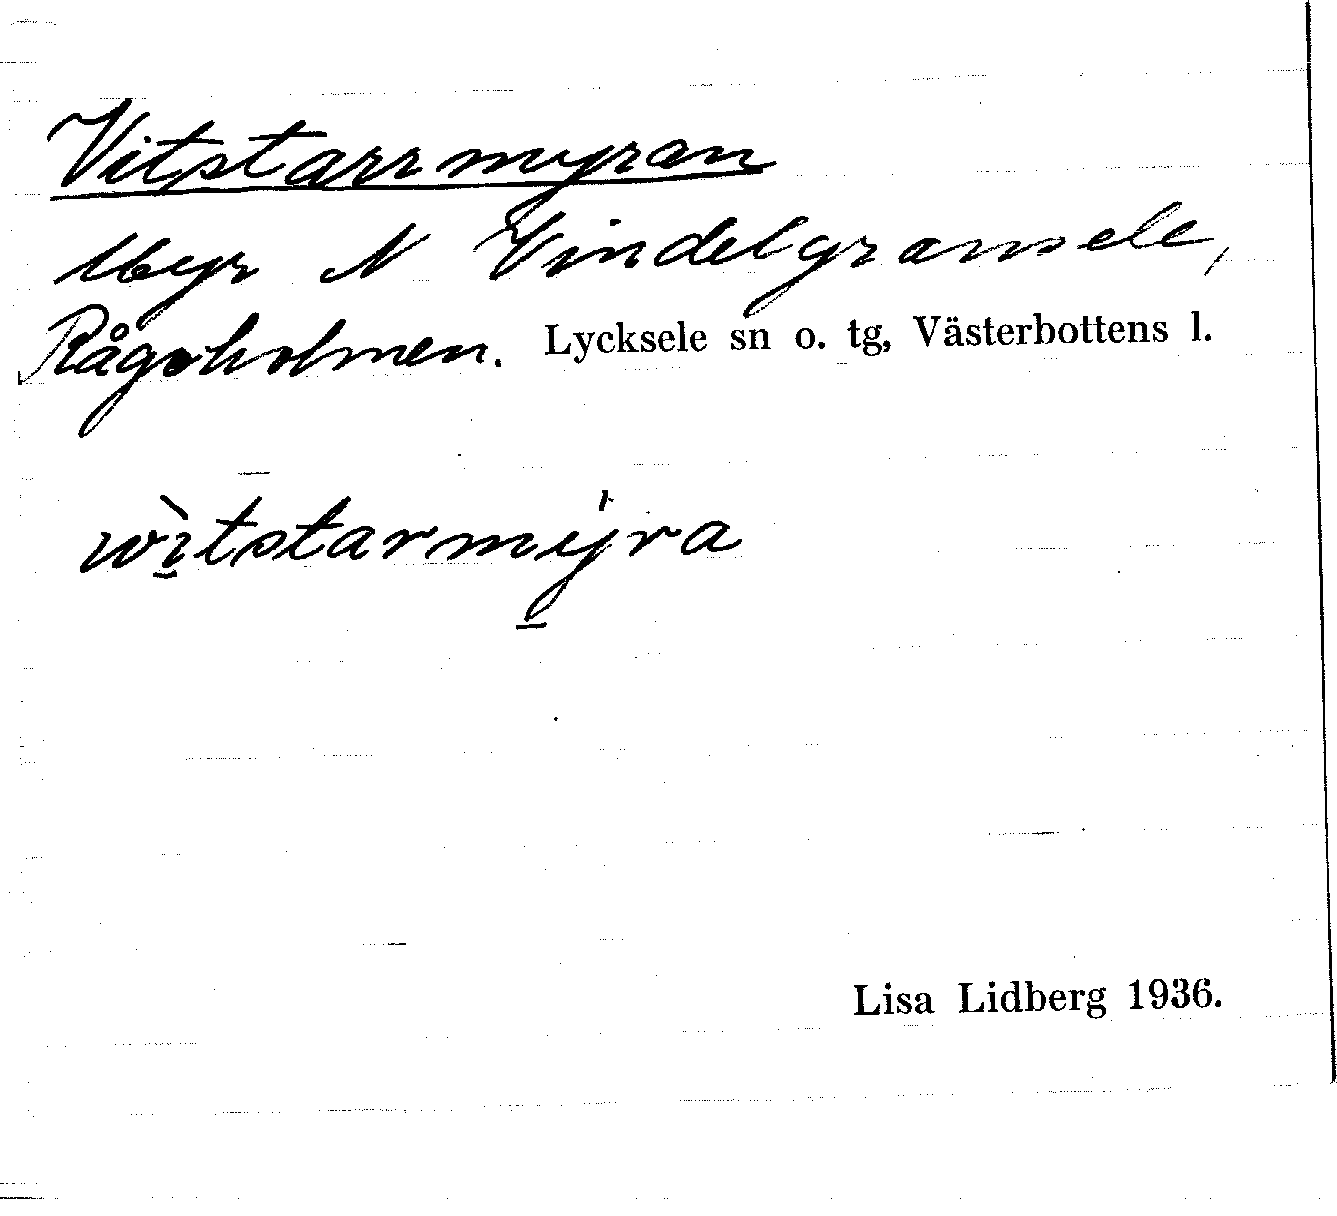 Vitstarrmyran
Myr N Vindelgransele,
Rågoholmen. Lycksele sn o. tg, Västerbottens l.
wìtstarmýra
Lisa Lidberg 1936.